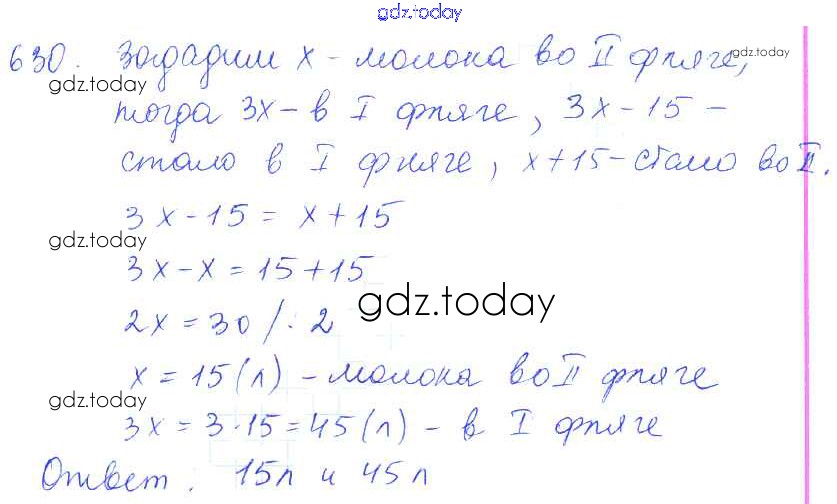 gdz.today
630. Зададим x - молока во II фляге,
gdz.today
gdz.today
тогда 3x - в I фляге, 3x - 15 -
стало в I фляге, x + 15 - стало во II.
3x - 15 = x + 15
gdz.today
3x - x = 15 + 15
gdz.today
2x = 30 / : 2
x = 15 (л) - молока во II фляге
gdz.today
3x = 3 · 15 = 45 (л) - в I фляге
Ответ: 15л и 45л